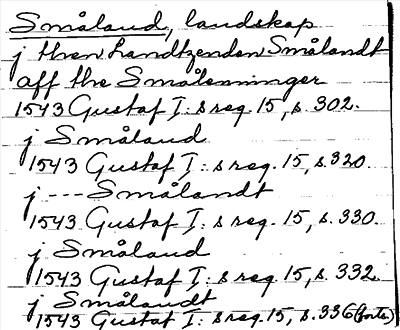 Småland, landskap
j then landtzenden Smålandt
aff the Smålenninger
1543 Gustaf I:s reg. 15, s. 302.
j Småland
1543 Gustaf I:s reg. 15, s. 320.
j --- Smålandt
1543 Gustaf I:s reg. 15, s. 330.
j Småland
1543 Gustaf I:s reg. 15, s. 332.
j Smålandt
1543 Gustaf I:s reg. 15, s. 336 (forts.)